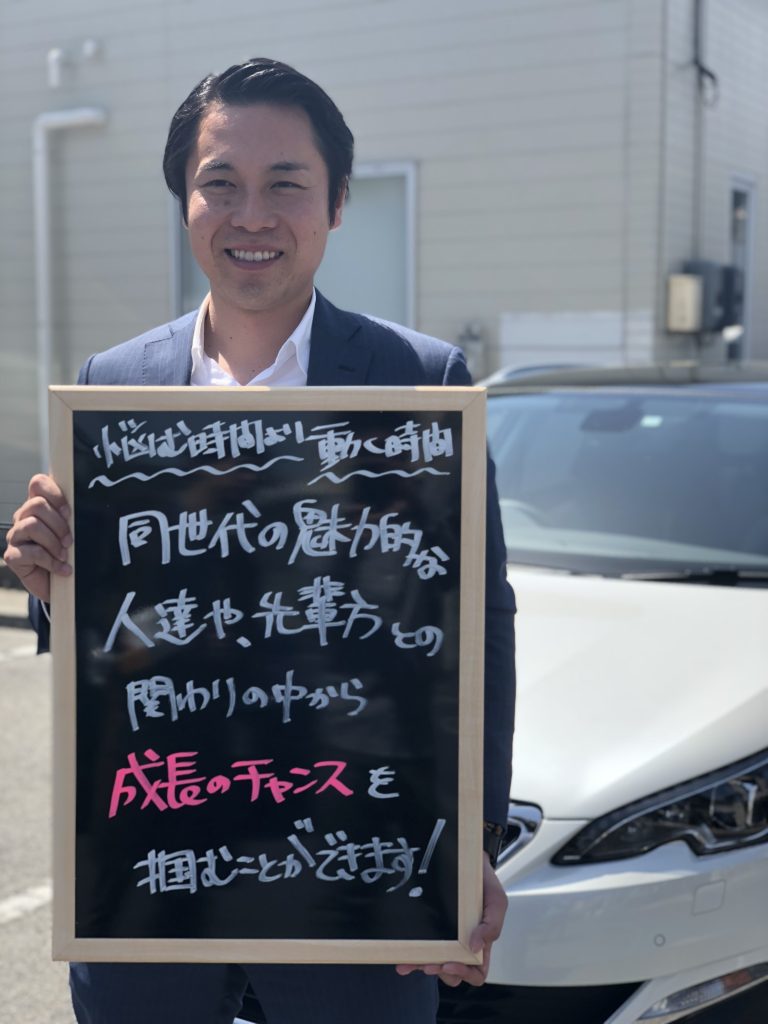 悩む時間より動く時間
同世代の魅力的な
人達や、先輩方との
関わりの中から
成長のチャンスを
掴むことができます!